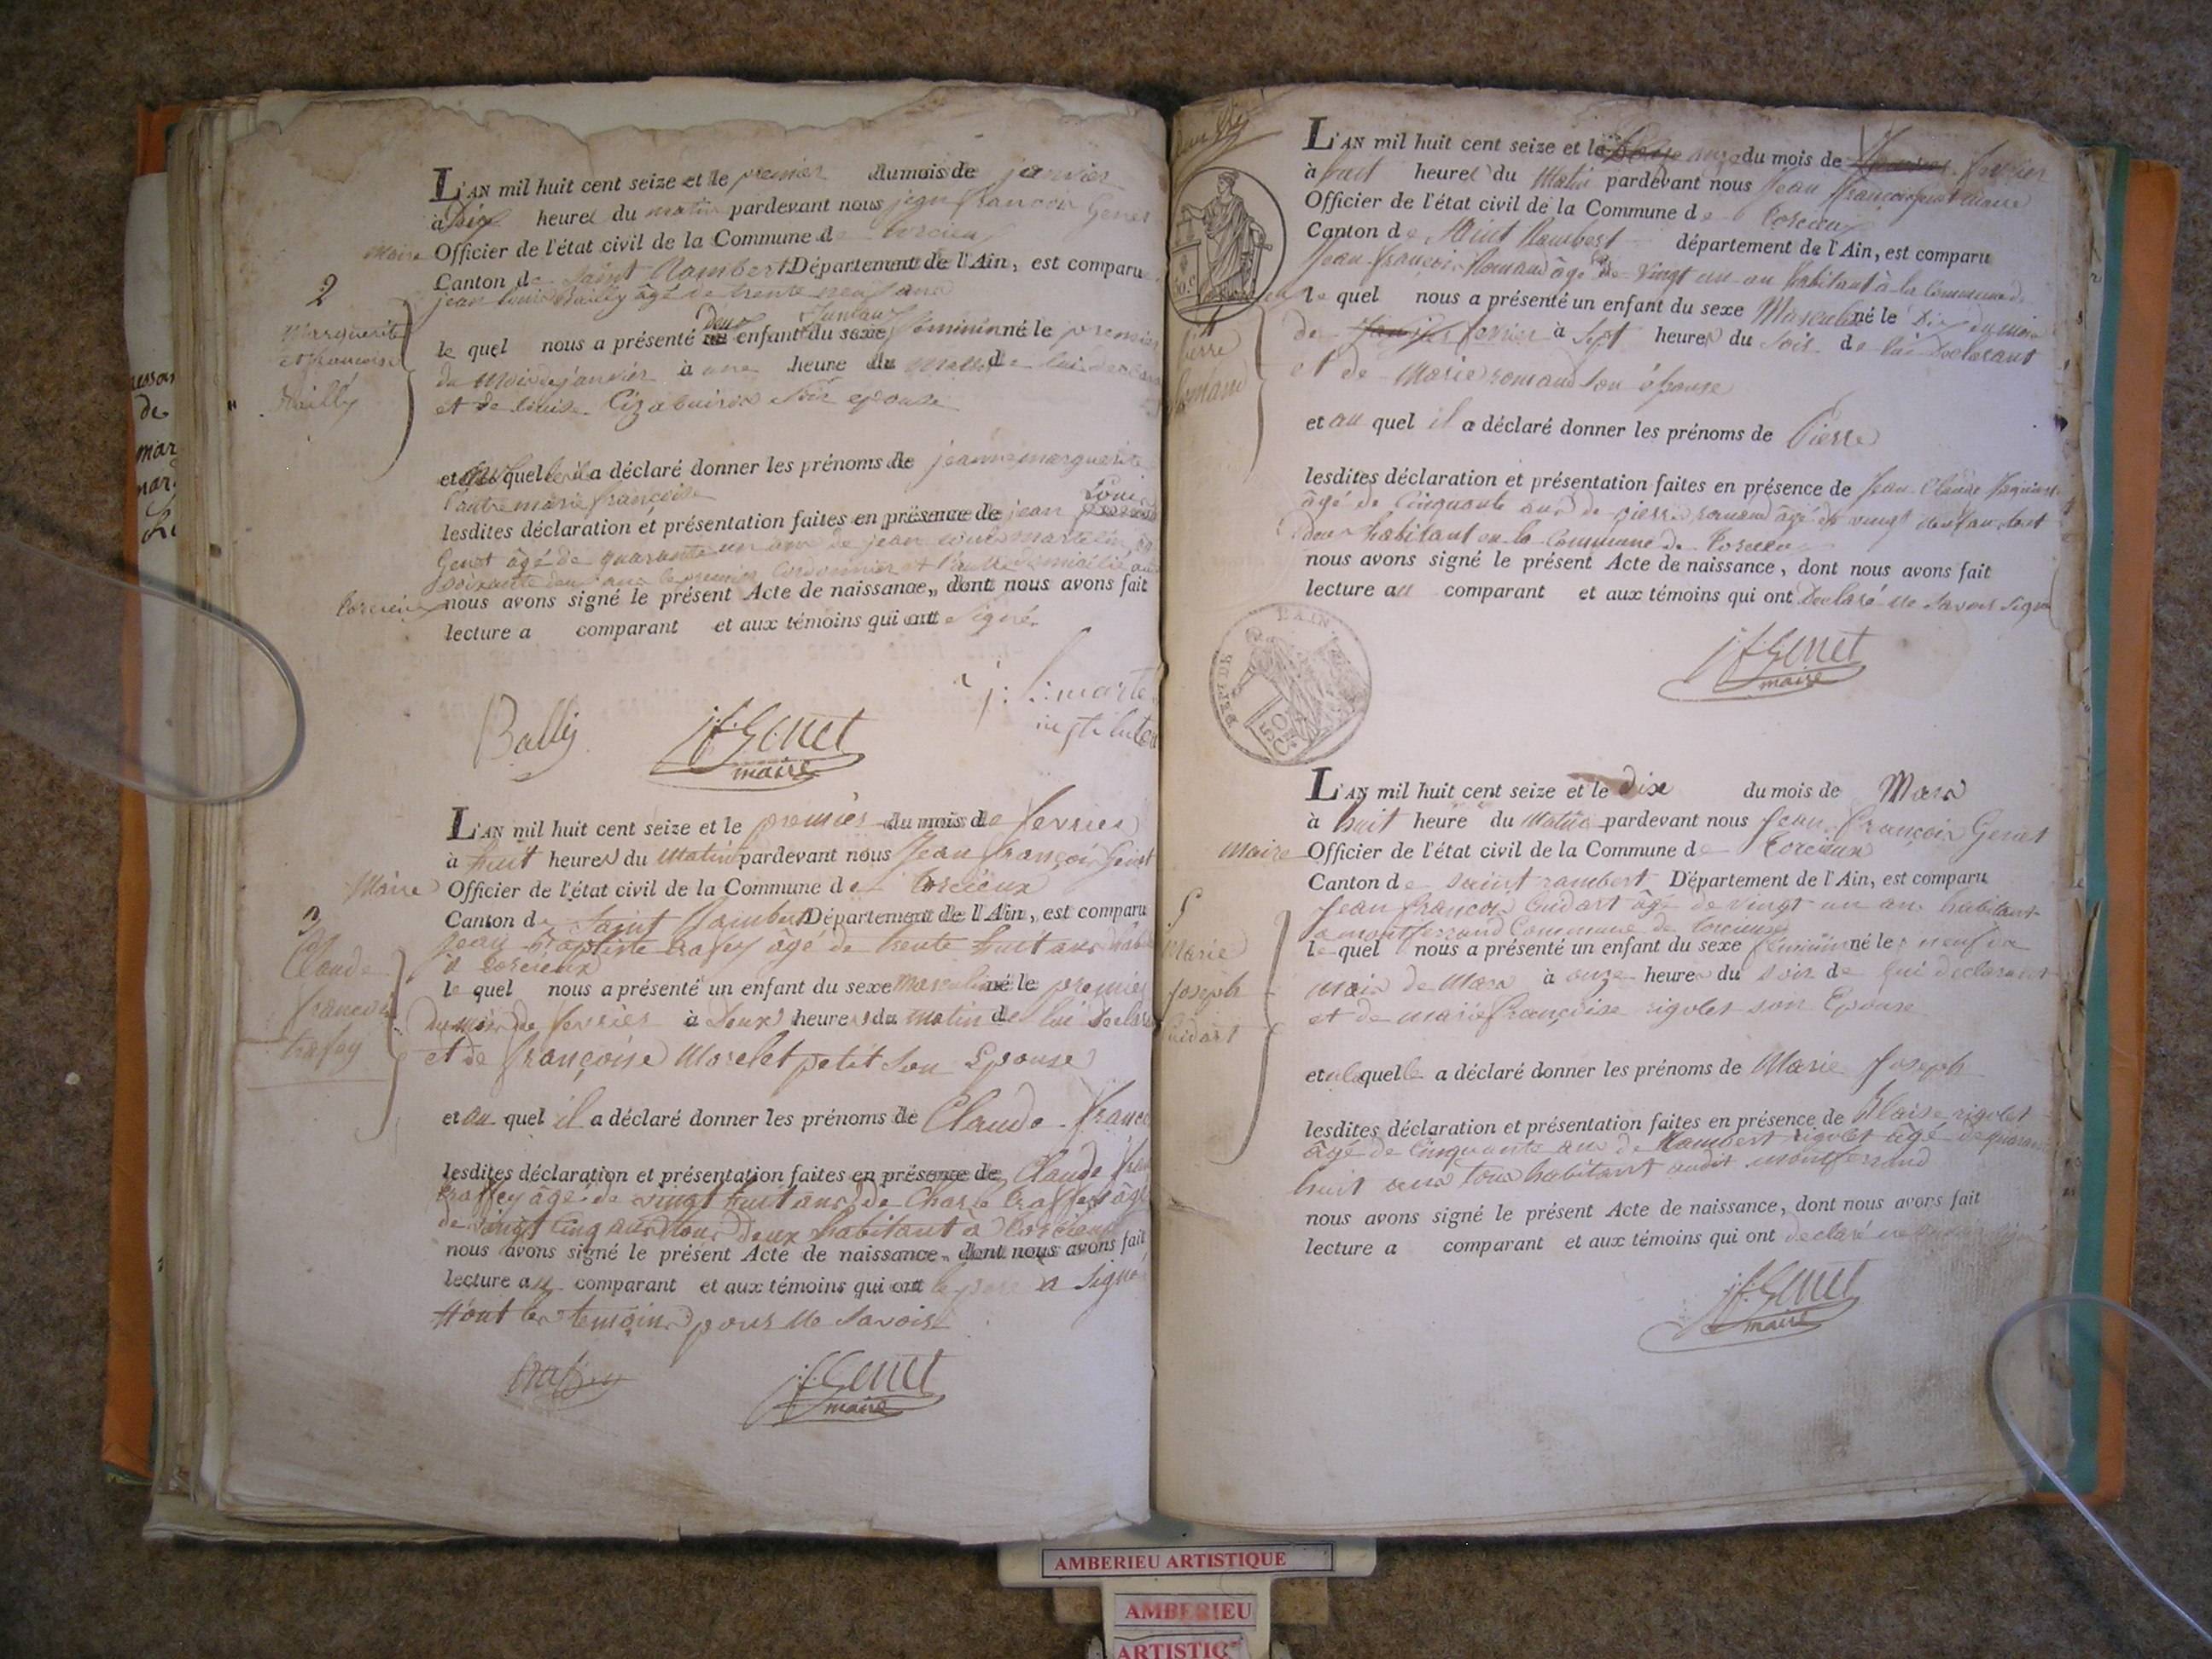 L'AN mil huit cent seize et le premier du mois de janvier
à Dix heures du matin pardevant nous jean françois Genet
Maire Officier de l'état civil de la Commune de torcieu
Canton de Saint Rambert Département de l'Ain, est comparu
jean Louis Bailly âgé de trente neuf ans
2
Marguerite
et françoise
Bailly
le quel nous a présenté deux enfant du sexe féminin né le premier
du Mois de janvier à une heure du matin de lui déclarant
et de louise son epouse
et quel il a déclaré donner les prénoms de jeanne marguerite
l'autre marie françoise
lesdites déclaration et présentation faites en présence de jean Louis
Genet âgé de quarante un ans de jean louis martelin
soixante deux ans le premier Cordonnier et l'autre
torcieu nous avons signé le présent Acte de naissance, dont nous avons fait
lecture a comparant et aux témoins qui ont signé.
j: l: marte
instituteu
Bailly
jf Genet
maire
L'AN mil huit cent seize et le premier du mois de fevrier
à huit heures du Matin pardevant nous Jean françois Genet
Maire Officier de l'état civil de la Commune de torcieux
Canton de Saint Rambert Département de l'Ain, est comparu
jean Baptiste trafey âgé de trente huit ans
à torcieux
3
Claude
françois
trafey
le quel nous a présenté un enfant du sexe masculin né le premier
du mois de fevrier à Deux heures du matin de lui Declara
et de françoise Morelet petit son Epouse
et au quel il a déclaré donner les prénoms de Claude franco
lesdites déclaration et présentation faites en présence de Claude fran
traffey âgé de vingt huit ans de Charle traffey âgé
de vingt cinq ans tous Deux habitant à torcieux
nous avons signé le présent Acte de naissance, dont nous avons fait
lecture au comparant et aux témoins qui ont le pere a signé
non les temoins pour ne savoir
trafey
jf Genet
maire
L'AN mil huit cent seize et le onze du mois de fevrier
à huit heures du Matin pardevant nous Jean françois Genet Maire
Officier de l'état civil de la Commune de torcieux
Canton de Saint Rambert département de l'Ain, est comparu
Jean françois Romand âgé de vingt un an habitant à la Commune de
50. C.
le quel nous a présenté un enfant du sexe Masculin né le Dix du mois
4
pierre
Romand
de fevrier à Sept heures du Soir de lui Declarant
et de Marie romand son épouse
et au quel il a déclaré donner les prénoms de Pierre
lesdites déclaration et présentation faites en présence de Jean Claude
âgé de Cinquante ans de pierre romand âgé de vingt neuf ans tout
deux habitant en la Commune de torcieu
nous avons signé le présent Acte de naissance, dont nous avons fait
lecture au comparant et aux témoins qui ont Declaré ne savoir signe
L'AIN.
50
C.
jf Genet
maire
L'AN mil huit cent seize et le dix du mois de Mars
à huit heure du Matin pardevant nous Jean françois Genet
maire Officier de l'état civil de la Commune de Torcieux
Canton de saint rambert Département de l'Ain, est comparu
Jean françois Cuidart âgé de vingt un an habitant
a montferrand Commune de torcieux
5
Marie
Joseph
Cuidart
le quel nous a présenté un enfant du sexe féminin né le neuf du
mois de Mars à onze heures du soir de lui declarant
et de marie françoise rigolet son Epouse
et a laquelle a déclaré donner les prénoms de Marie Joseph
lesdites déclaration et présentation faites en présence de Blaise rigolet
âgé de Cinquante ans de Rambert rigolet âgé de quarante
huit ans tous habitant audit montferrand
nous avons signé le présent Acte de naissance, dont nous avons fait
lecture a comparant et aux témoins qui ont declaré ne
jf Genet
maire
AMBERIEU ARTISTIQUE
AMBERIEU
ARTISTIQ